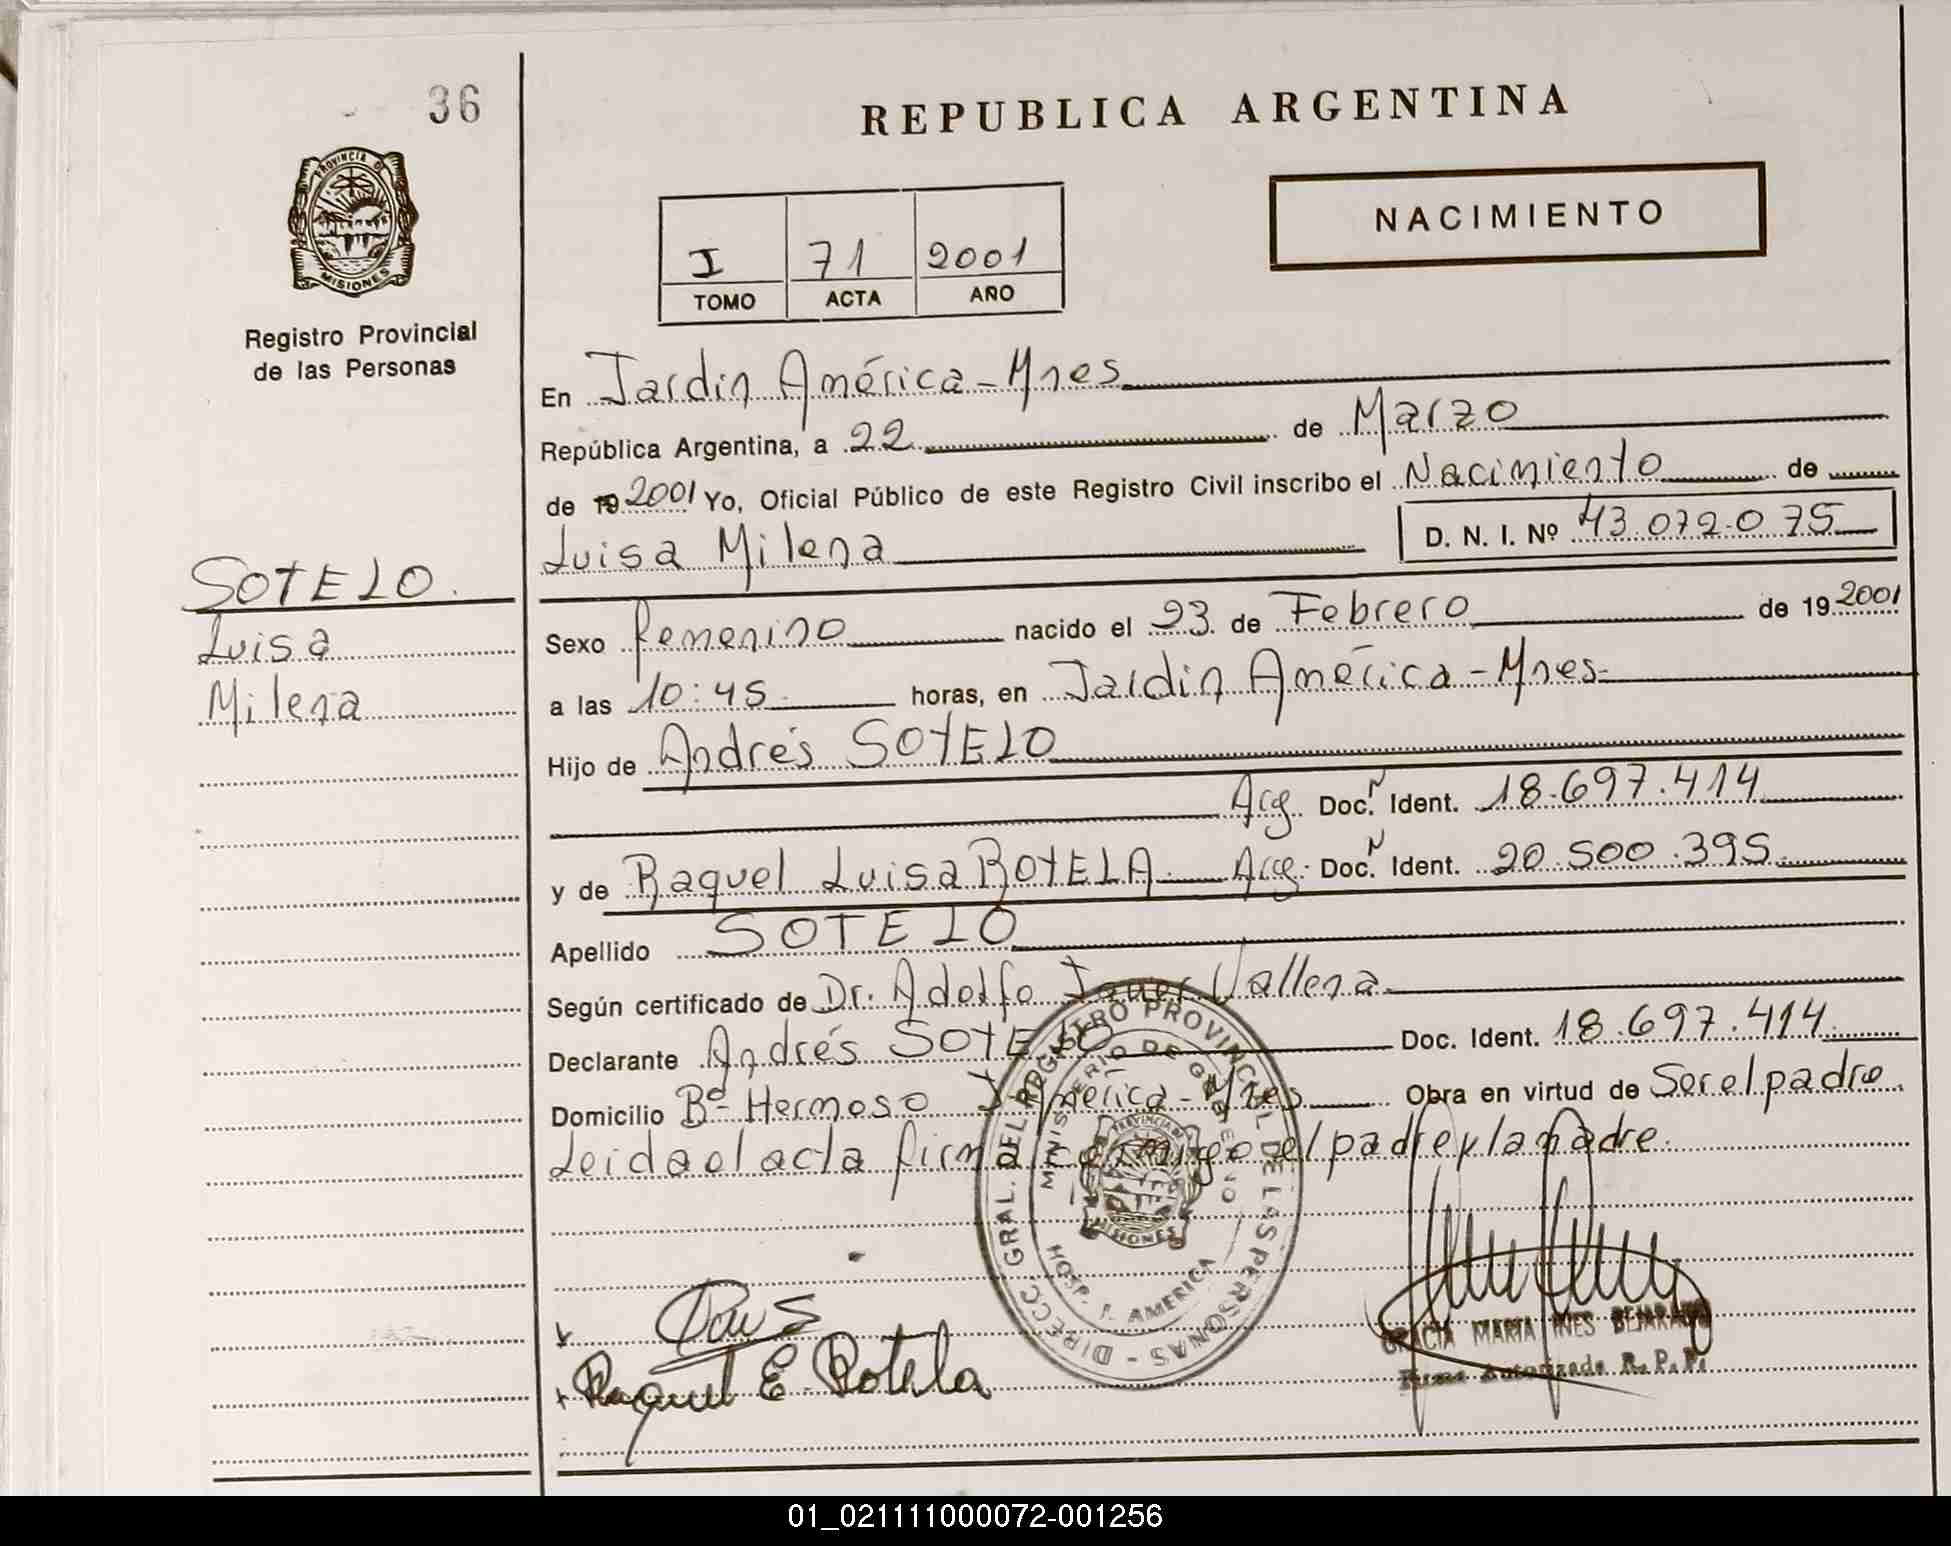 36
REPUBLICA ARGENTINA
PROVINCIA DE
MISIONES
Registro Provincial
de las Personas
NACIMIENTO
I 71 2001
TOMO ACTA AÑO
En Jardin América - Mnes
República Argentina, a 22 de Marzo
de 19 2001 Yo, Oficial Público de este Registro Civil inscribo el Nacimiento de
Luisa Milena D. N. I. Nº 43.072.075
SOTELO.
Luisa
Milena
Sexo femenino nacido el 23 de Febrero de 19 2001
a las 10:45 horas, en Jardin América - Mnes
Hijo de Andrés SOTELO
Arg. Doc. N Ident. 18.697.414
y de Raquel Luisa ROTELA Arg. Doc. N Ident. 20.500.395
Apellido SOTELO
Según certificado de Dr. Adolfo Vallena
Declarante Andrés SOTELO Doc. Ident. 18.697.414
Domicilio Bº Hermoso J. América - Mnes Obra en virtud de Ser el padre
Leida el acta firma conmigo el padre y la madre.
DIRECC. GRAL. DEL REGISTRO PROVINCIAL DE LAS PERSONAS -
MINISTERIO DE GOBIERNO
PROVINCIA DE
MISIONES
HOSP. J. AMERICA
Raquel E. Rotela
GRACIA MARIA INES BEJARANO
Firma Autorizada R. P. P.
01_021111000072-001256